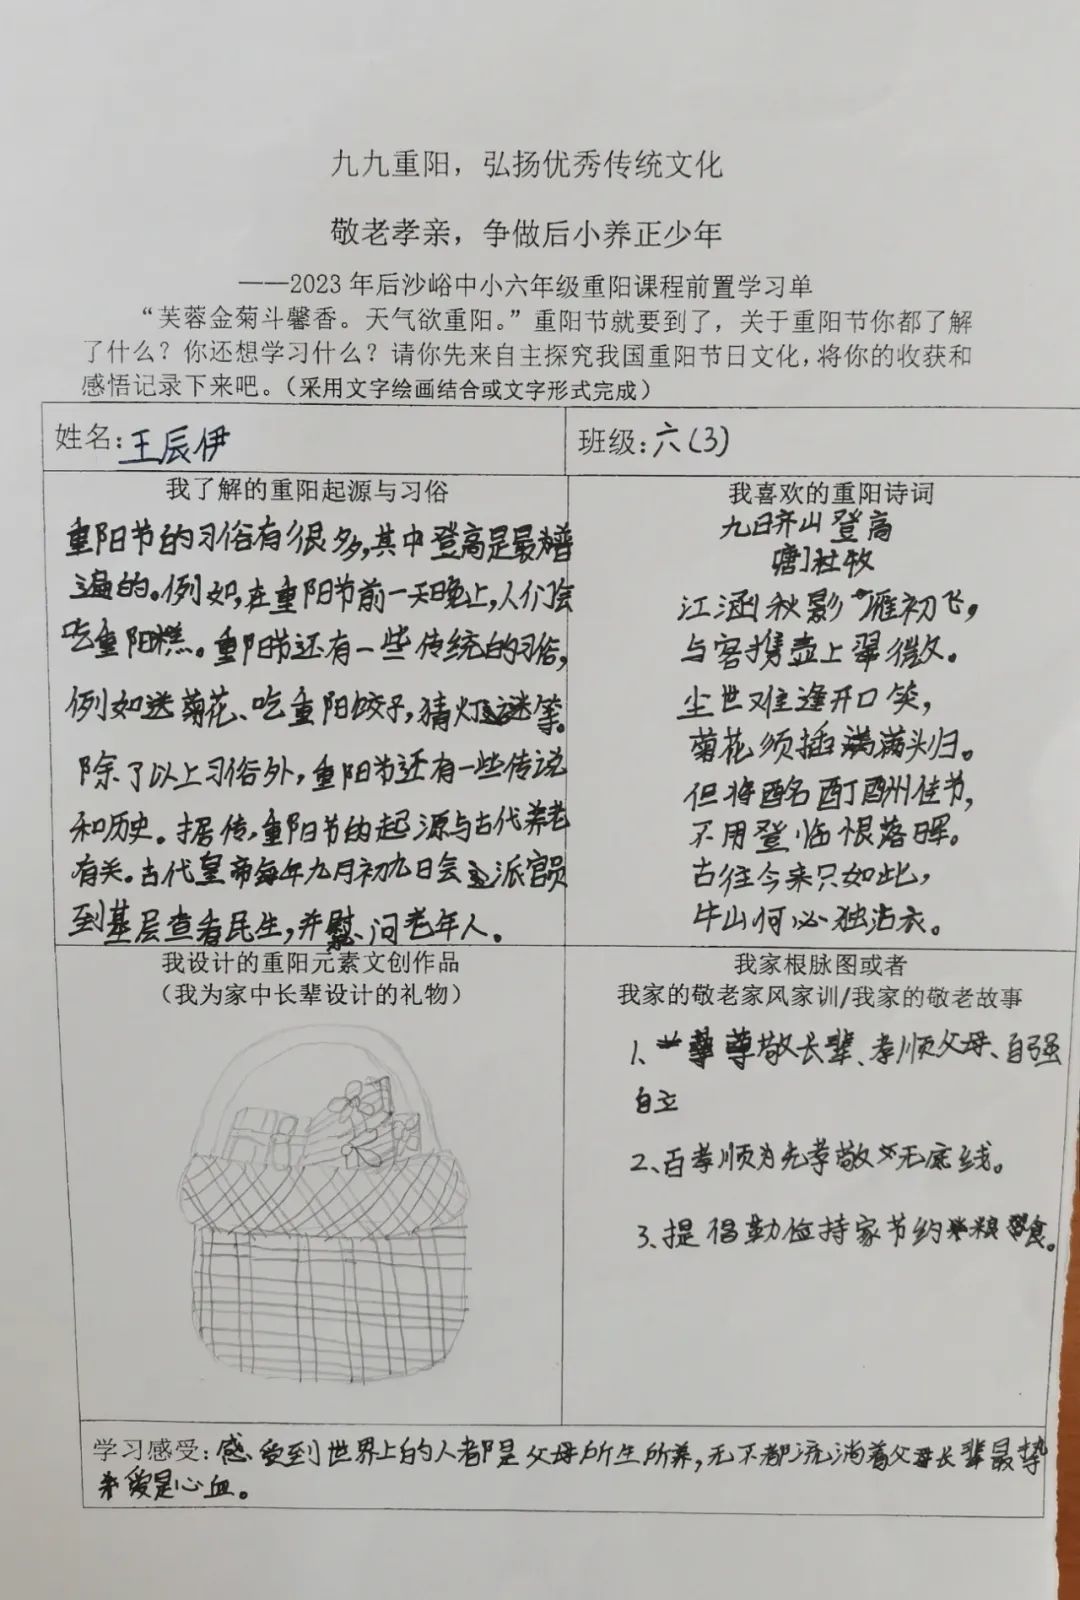 九九重阳，弘扬优秀传统文化
敬老孝亲，争做后小养正少年
——2023 年后沙峪中小六年级重阳课程前置学习单
“芙蓉金菊斗馨香。天气欲重阳。”重阳节就要到了，关于重阳节你都了解
了什么？你还想学习什么？请你先来自主探究我国重阳节日文化，将你的收获和
感悟记录下来吧。（采用文字绘画结合或文字形式完成）
姓名：王辰伊
班级：六(3)
我了解的重阳起源与习俗
重阳节的习俗有很多，其中登高是最普
遍的。例如，在重阳节前一天晚上，人们会
吃重阳糕。重阳节还有一些传统的习俗，
例如送菊花、吃重阳饺子，猜灯谜等。
除了以上习俗外，重阳节还有一些传说
和历史。据传，重阳节的起源与古代养老
有关。古代皇帝每年九月初九日会派官员
到基层查看民生，并慰问老年人。
我喜欢的重阳诗词
九日齐山登高
唐]杜牧
江涵秋影雁初飞，
与客携壶上翠微。
尘世难逢开口笑，
菊花须插满头归。
但将酩酊酬佳节，
不用登临恨落晖。
古往今来只如此，
牛山何必独沾衣。
我设计的重阳元素文创作品
（我为家中长辈设计的礼物）
我家根脉图或者
我家的敬老家风家训/我家的敬老故事
1、尊敬长辈、孝顺父母、自强
自立
2、百孝顺为先孝敬无底线。
3、提倡勤俭持家节约粮食。
学习感受：感受到世界上的人都是父母所生所养，无不都流淌着父母长辈最挚
爱是心血。